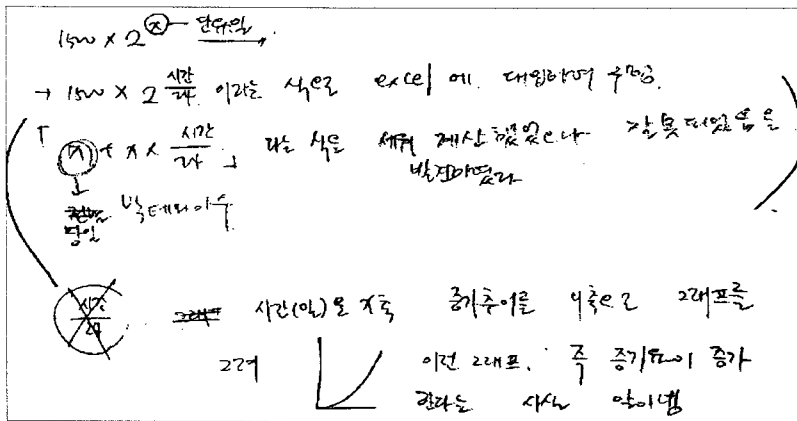 1500 × 2^x – 단위일
→ 1500 × 2^시간/24 이라는 식으로 excel 에 대입하여 구함.
「x + x × 시간/24」 라는 식을 세워 계산했었으나 잘못되었음을
발견하였다
당일 박테리아 수
시간/24
시간(일)을 x축 증가추이를 y축으로 그래프를
그려 이런 그래프. 즉 증가율이 증가
한다는 사실 알아냄